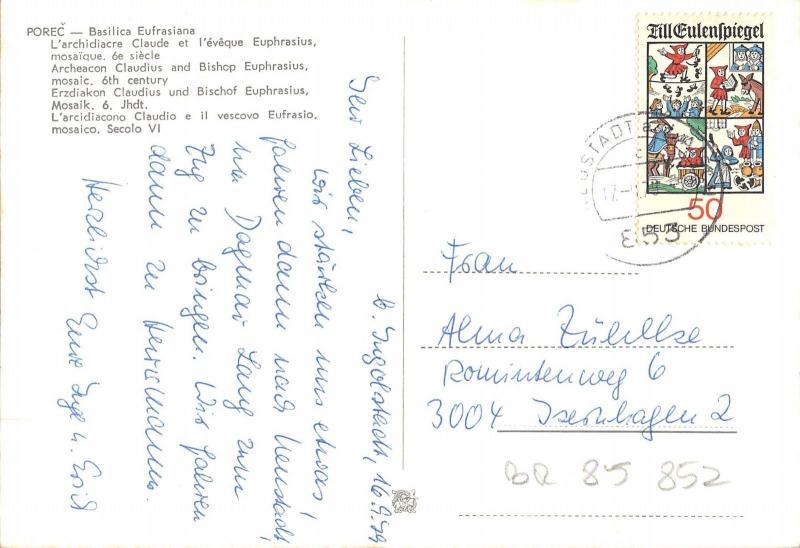 POREČ — Basilica Eufrasiana
L'archidiacre Claude et l'évêque Euphrasius,
mosaïque. 6e siècle
Archeacon Claudius and Bishop Euphrasius,
mosaic. 6th century
Erzdiakon Claudius und Bischof Euphrasius,
Mosaik. 6. Jhdt.
L'arcidiacono Claudio e il vescovo Eufrasio,
mosaico. Secolo VI
b. Ingolstadt, 16.9.79
Ihr Lieben,
wir stärken uns etwas!
fahren dann nach Neustadt,
um Dagmar Lang zum
Zug zu bringen. Wir fahren
dann zu Herrmanns.
Herzlichst Eure Inge u. Erich
Till Eulenspiegel
50
DEUTSCHE BUNDESPOST
NEUSTADT a
853
Frau
Alma Zühlke
Romintenweg 6
3004 Isernhagen 2
BR 85 852